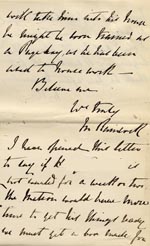 work take him into his House
he might be soon trained as
a Page boy, as he had been
used to House work –
Believe me
Yrs truly
I have opened this letter
to say if
is
not wanted for a week or two
the Matron would have more
time to get his things ready
we must get a box made for